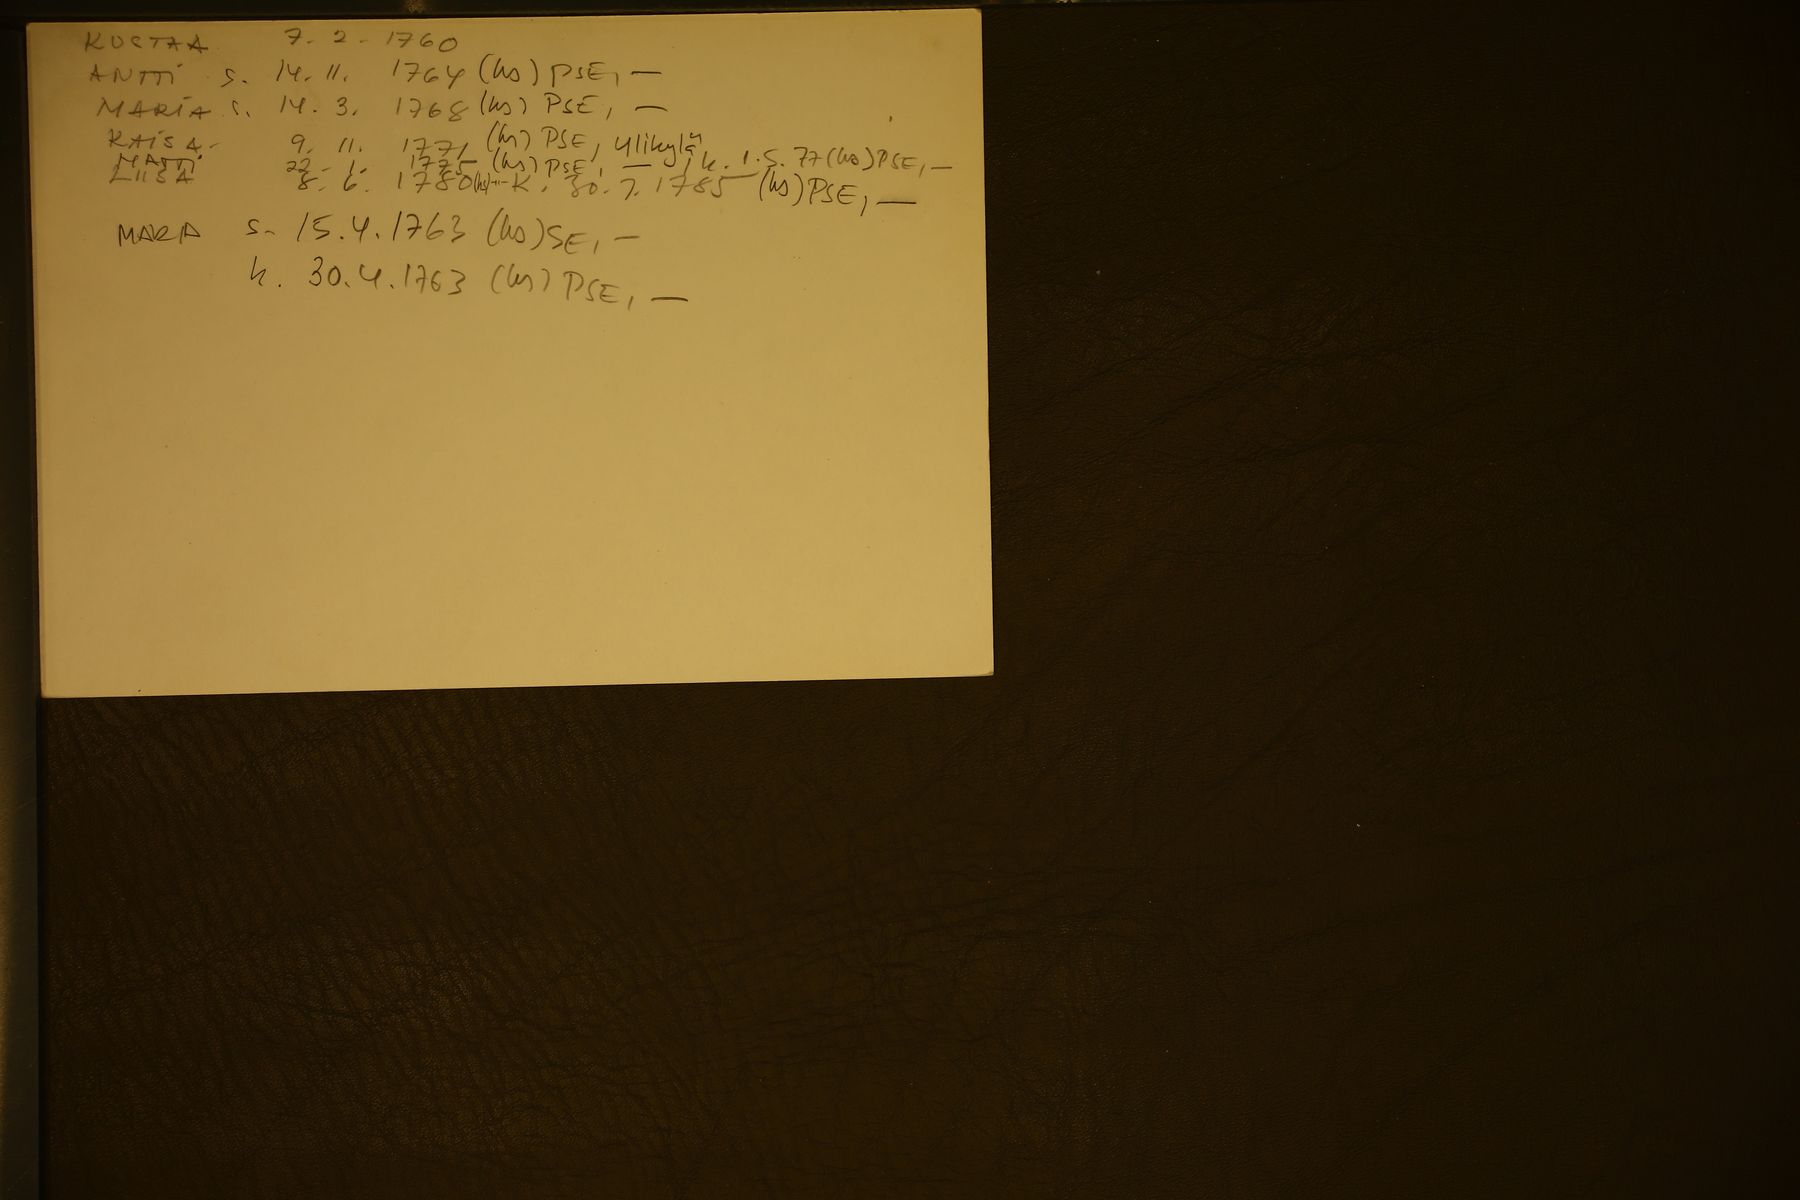 KUSTAA 7. 2. 1760
ANTTI s. 14. 11. 1764 (ks) PSE, —
MARIA s. 14. 3. 1768 (ks) PSE, —
KAISA 9. 11. 1771 (ks) PSE, Ylikylä
MATTI 22. 1. 1775 (ks) PSE, — , k. 1.5.77 (ks) PSE, —
LIISA 8. 6. 1780 (ks) -"- K. 30. 7. 1785 (ks) PSE, —
MARIA s. 15.4.1763 (ks) SE, —
k. 30.4.1763 (ks) PSE, —